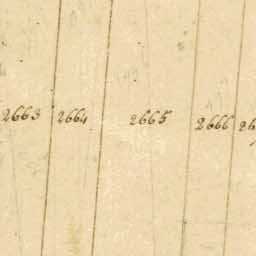 2663 2664 2665 2666 26